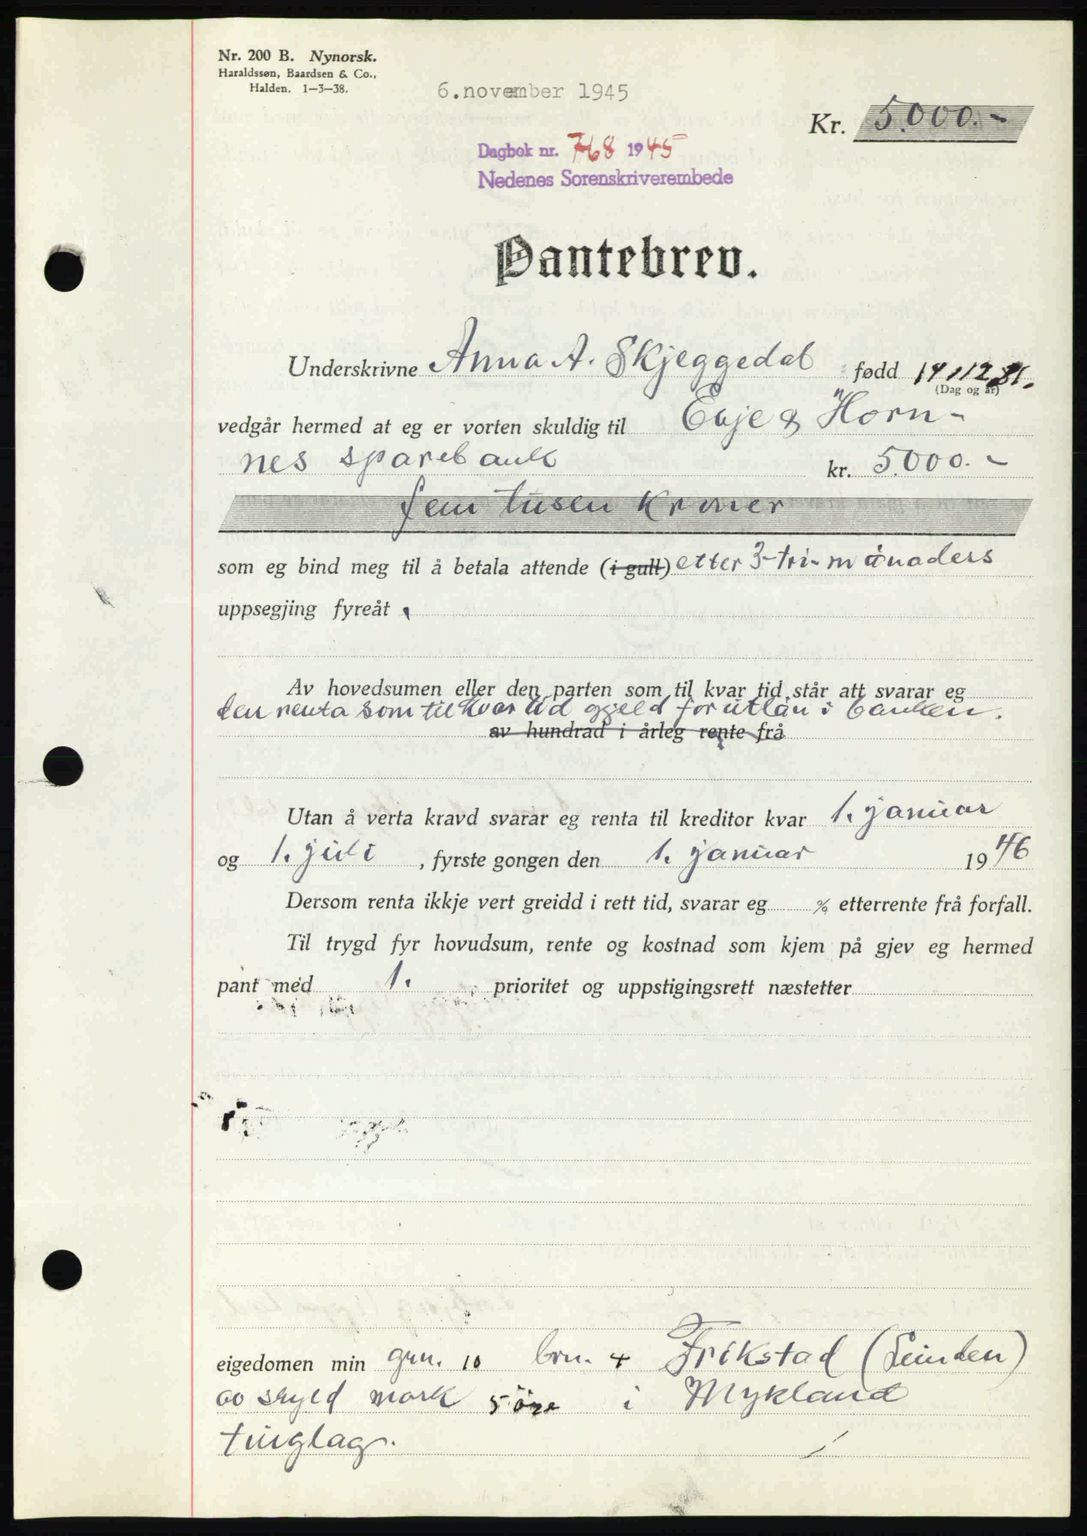 Nr. 200 B. Nynorsk.
Haraldssøn, Baardsen & Co.,
Halden. 1-3-38.
6.november 1945
Kr. 5.000.-
Dagbok nr. 768 1945
Nedenes Sorenskriverembede
Pantebrev.
Underskrivne Anna A. Skjeggedal fødd 14/12 81.
(Dag og år)
vedgår hermed at eg er vorten skuldig til Evje & Horn-
nes sparebank kr. 5.000.-
fem tusen kroner
som eg bind meg til å betala attende (i gull) etter 3-tri-månaders
uppsegjing fyreåt.
Av hovedsumen eller den parten som til kvar tid står att svarar eg
den renta som til kvar tid gjeld for utlån i banken.
av hundrad i årleg rente frå
Utan å verta kravd svarar eg renta til kreditor kvar 1. januar
og 1. juli, fyrste gongen den 1. januar 1946
Dersom renta ikkje vert greidd i rett tid, svarar eg % etterrente frå forfall.
Til trygd fyr hovudsum, rente og kostnad som kjem på gjev eg hermed
pant med 1. prioritet og uppstigingsrett næstetter
eigedomen min gnr. 10 brn. 4 Frikstad (Leinden)
av skyld mark 5 øre i Mykland
tinglag.